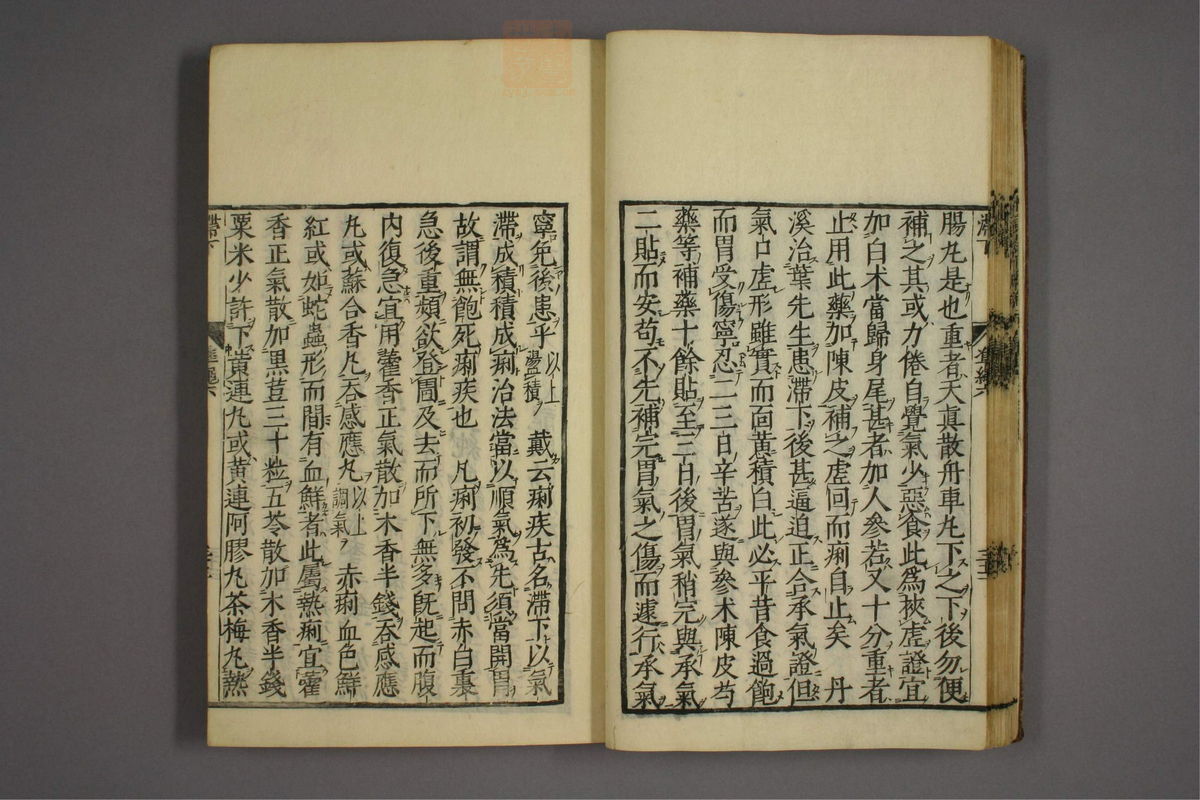 腸丸是也重者天真散舟車丸下之下後勿便
補之其或力倦自覺氣少惡食此為挾虛證宜
加白术當歸身尾甚者加人參若又十分重者
止用此藥加陳皮補之虛回而痢自止矣　丹
溪治葉先生患滯下後甚逼迫正合承氣證但
氣口虛形雖實而面黃積白此必平昔食過飽
而胃受傷寧忍二三日辛苦遂與參术陳皮芍
藥等補藥十餘貼至三日後胃氣稍完與承氣
二貼而安苟不先補完胃氣之傷而遽行承氣
寧免後患乎以上盪積　戴云痢疾古名滯下以氣
滯成積積成痢治法當以順氣為先須當開胃
故謂無飽死痢疾也　凡痢初發不問赤白裏
急後重頻欲登圊及去而所下無多既起而腹
内復急宜用藿香正氣散加木香半錢吞感應
丸或蘇合香丸吞感應丸以上調氣　赤痢血色鮮
紅或如蛇蟲形而間有血鮮者此屬熱痢宜藿
香正氣散加黑荳三十粒五苓散加木香半錢
粟米少許下黃連丸或黃連阿膠丸茶梅丸熱
滯下